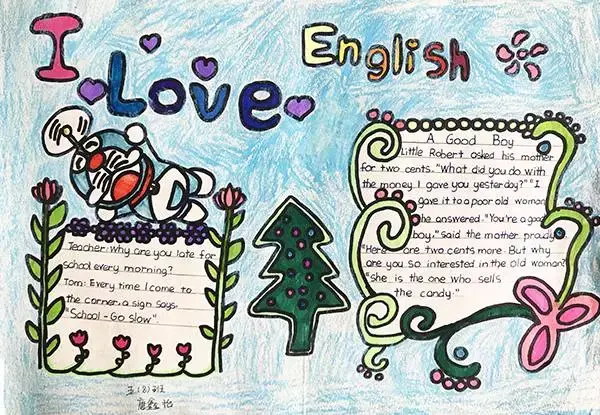 I Love English
A Good Boy
Little Robert asked his mother
for two cents. "What did you do with
the money I gave you yesterday?" "I
gave it to a poor old woman
he answered. "You're a good
boy," said the mother proudly
"Here are two cents more. But why
are you so interested in the old woman?"
"She is the one who sells
the candy."
Teacher: Why are you late for
school every morning?
Tom: Every time I come to
the corner, a sign says,
"School-Go slow".
五(8)班
唐鑫怡